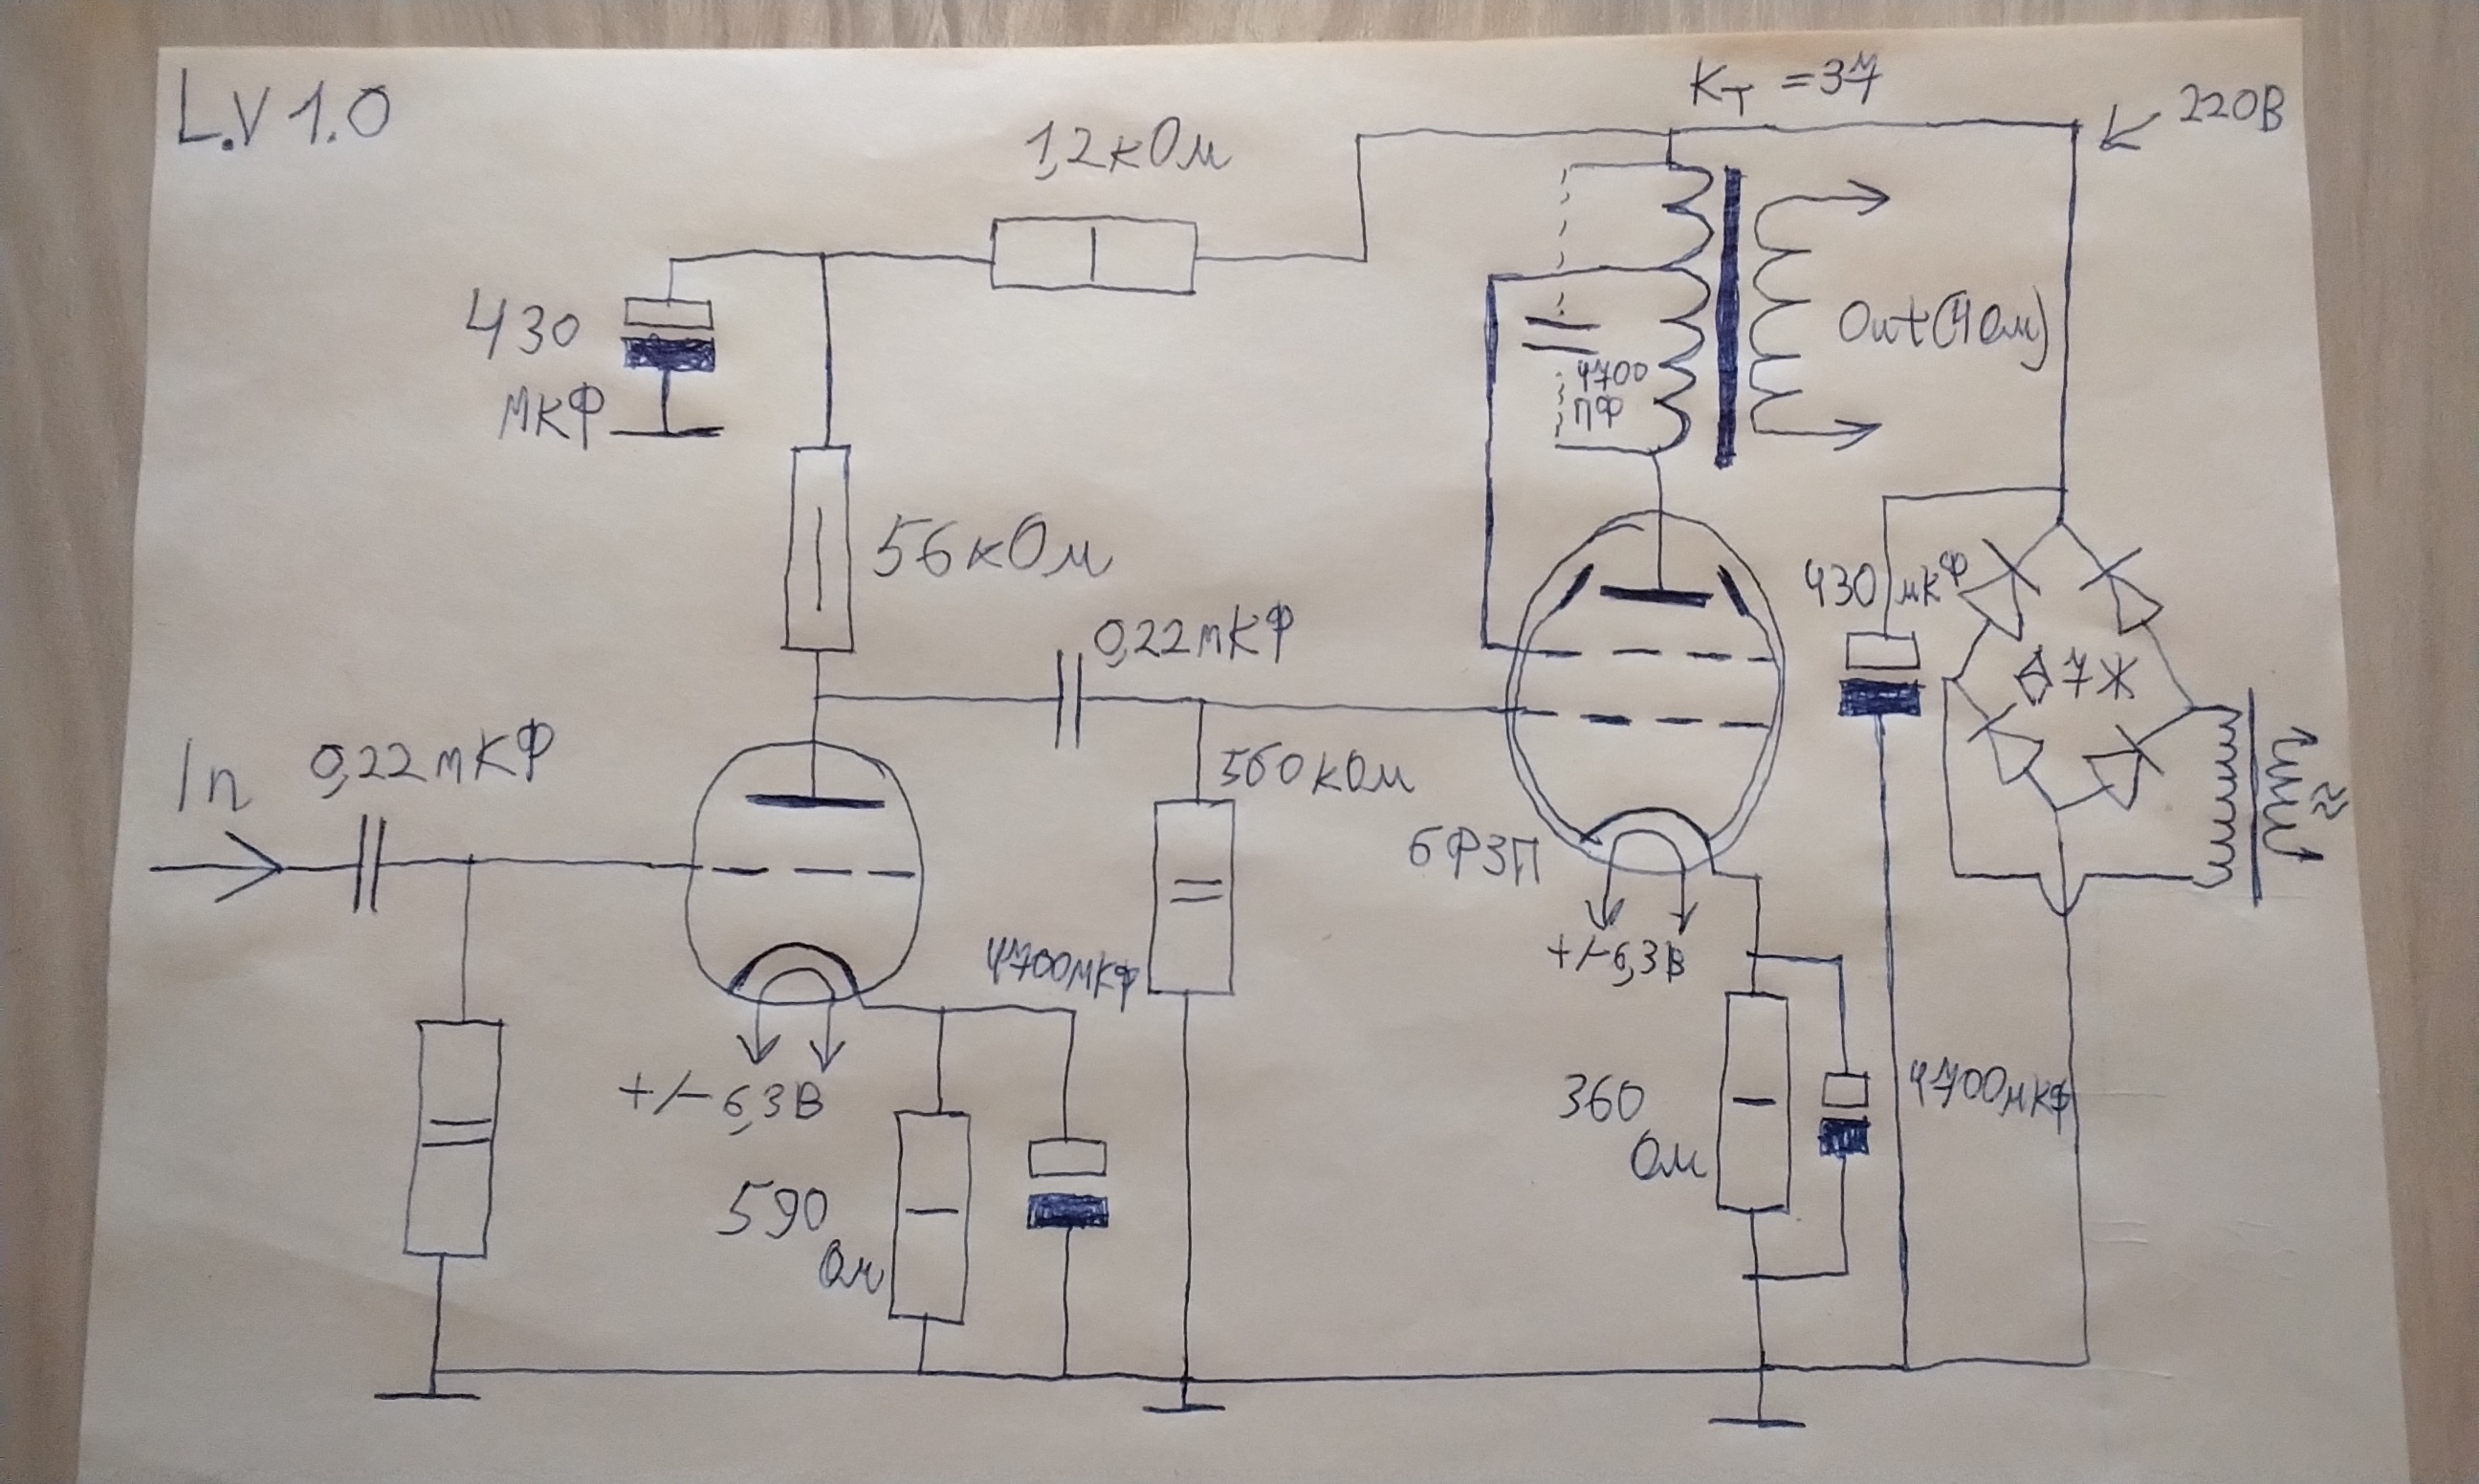 L.V 1.0
Kт =37
220В
1,2кОм
430
мкФ
Out(4Ом)
4700
пФ
56кОм
430 мкФ
0,22мкФ
Д7Ж
In
0,22мкФ
560кОм
6Ф3П
+/-6,3В
4700мкФ
+/-6,3В
590
Ом
360
Ом
4700мкФ